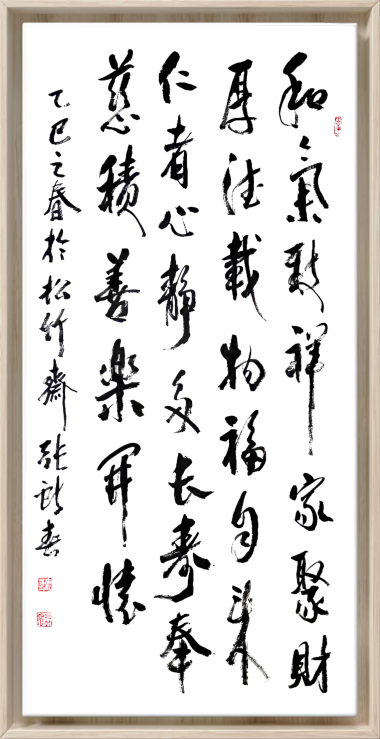 和氣致祥家聚財
厚德載物福自來
仁者心靜多長壽奉
慈積善樂開懷
乙巳之春於松竹齋張